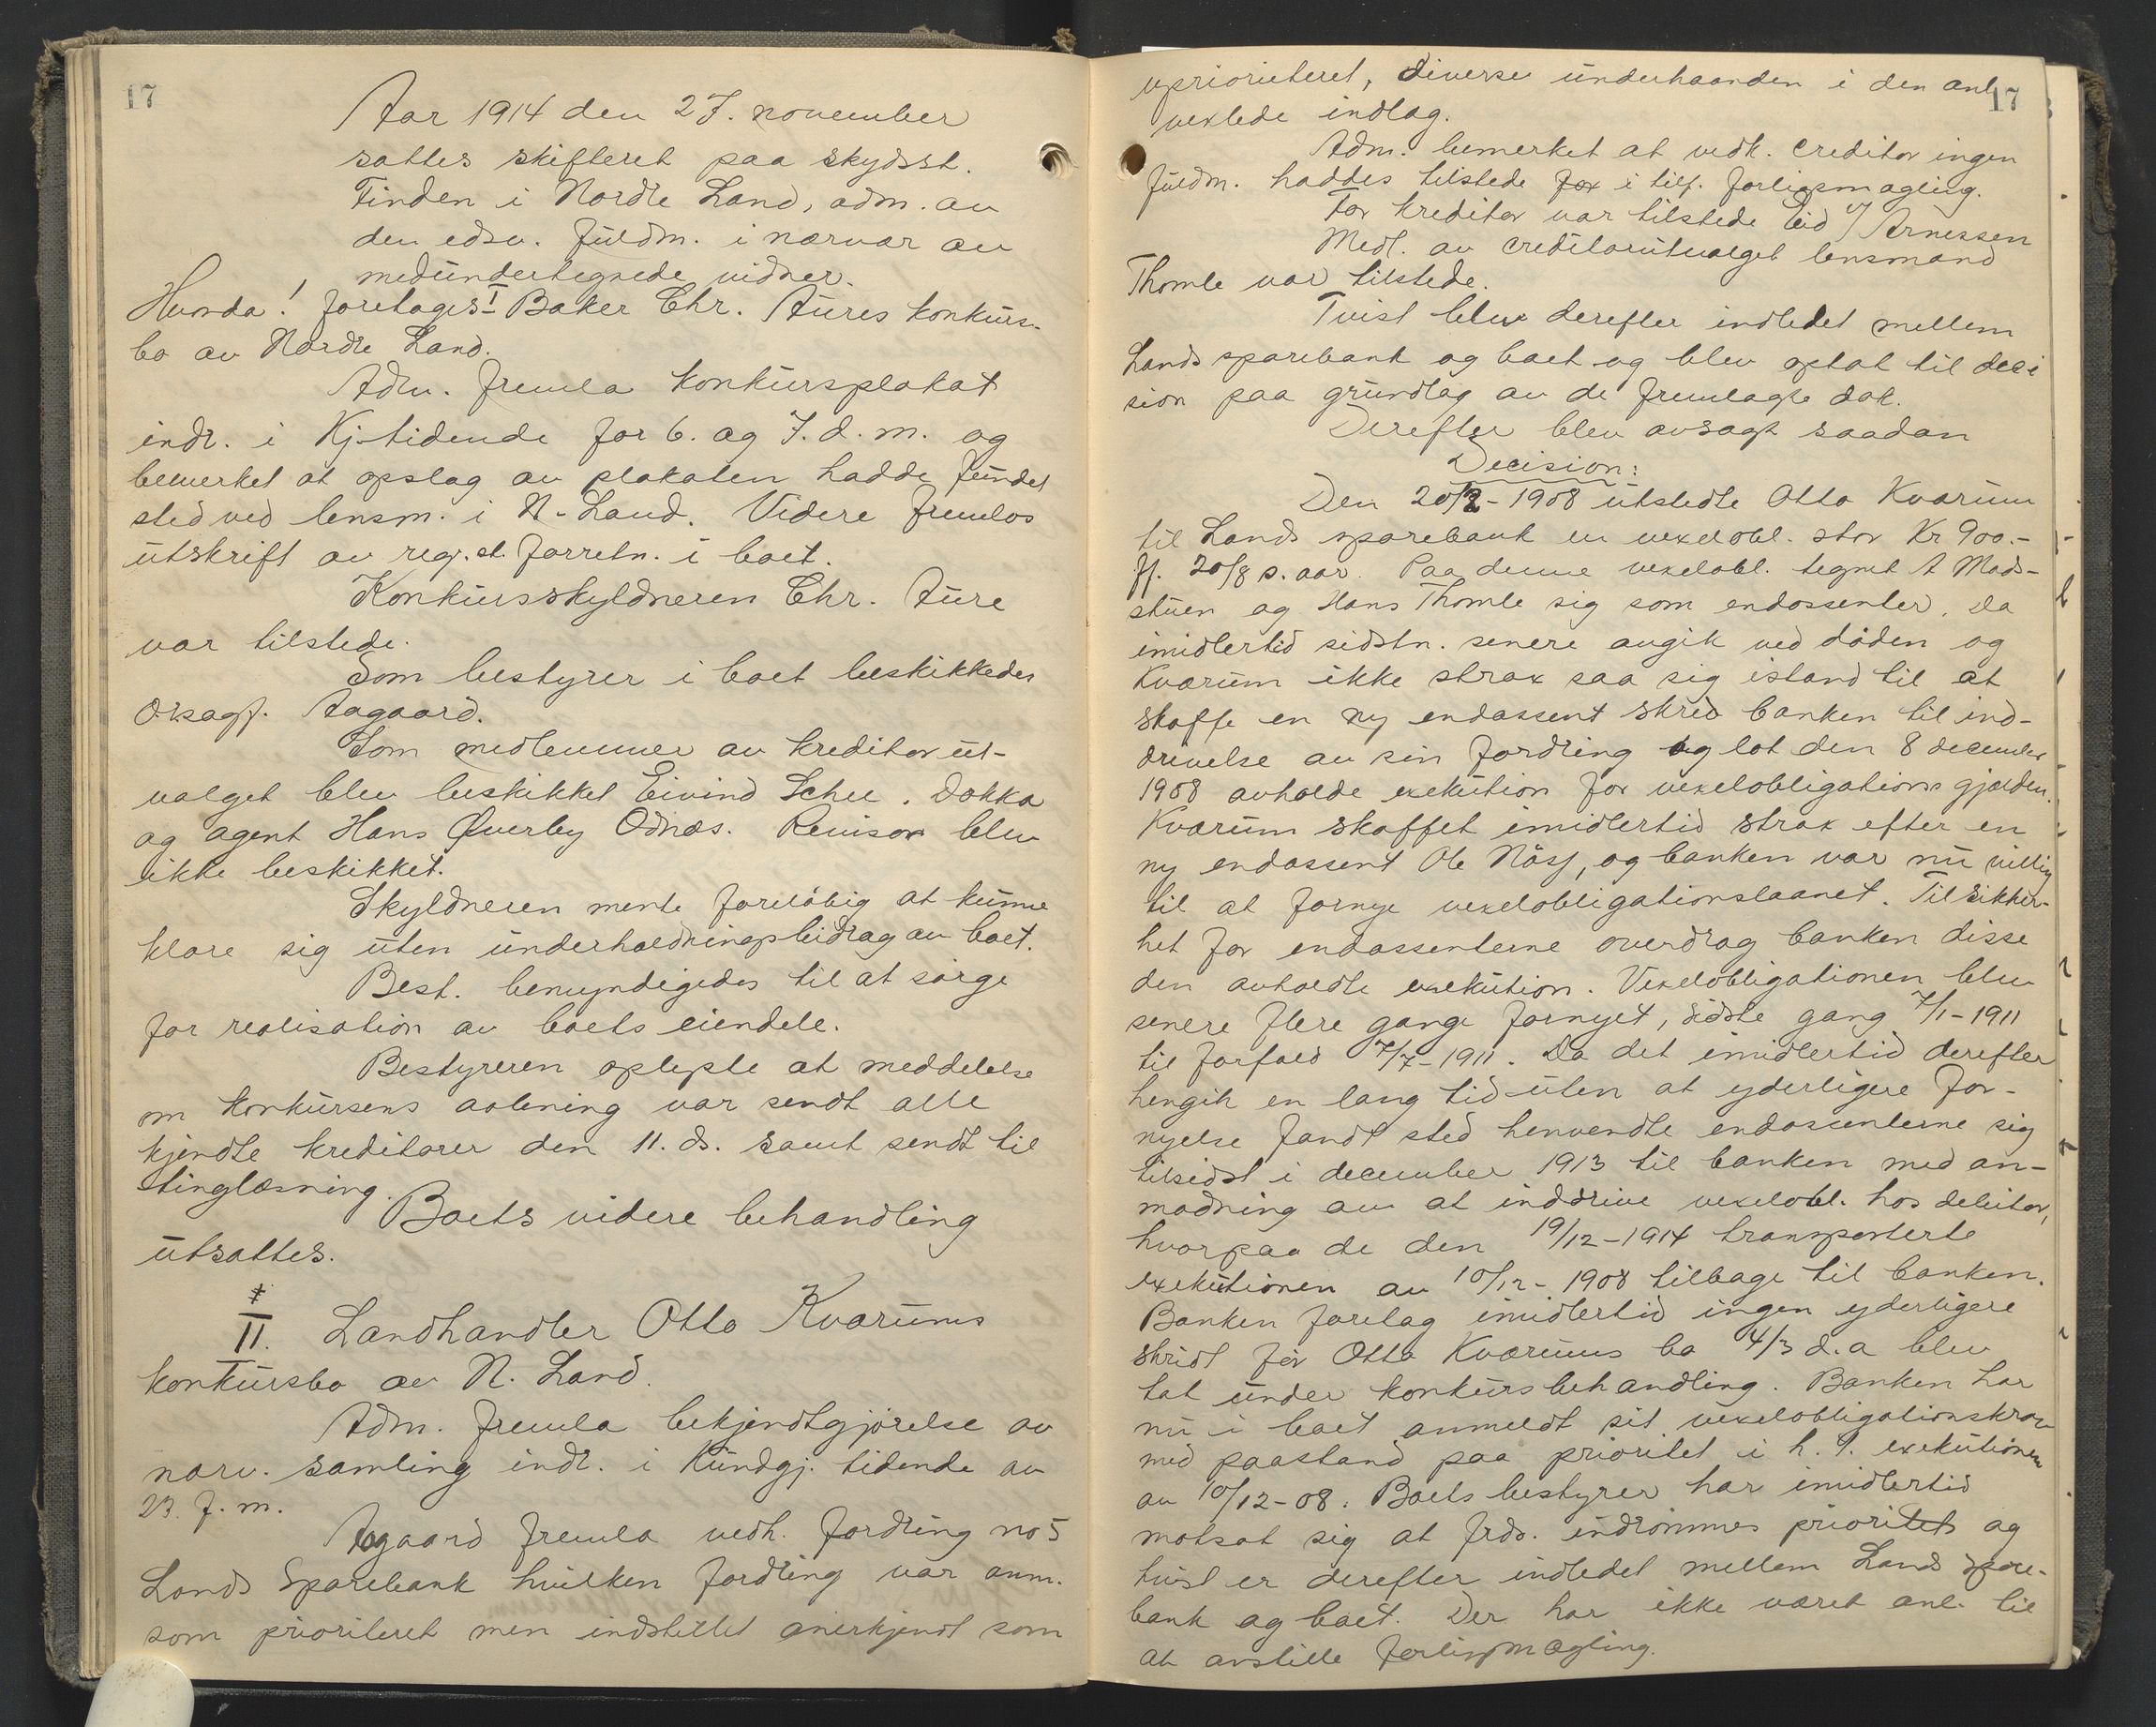 17
Aar 1914 den 27. november
sattes skifteret paa skydsst.
Tinden i Nordre Land, adm. av
den edsv. fuldm. i nærvær av
medundertegnede vidner.
Hvorda! foretoges I Baker Chr. Aures konkurs-
bo av Nordre Land.
Adm. fremla konkursplakat
indr. i Kj-tidende for 6. og 7. d. m. og
bemerket at opslag av plakaten hadde fundet
sted ved lensm. i N-Land. Videre fremlos
utskrift av reg. st. forretn. i boet.
Konkursskyldneren Chr. Aure
var tilstede.
Som bestyrer i boet beskikkedes
O.r.sagf. Aagaard.
Som medlemmer av kreditorut-
valget blev beskikket Eivind Schee. Dokka
og agent Hans Øverby Odnæs. Revisor blev
ikke beskikket.
Skyldneren mente foreløbig at kunne
klare sig uten underholdningsbidrag av boet.
Best. bemyndigedes til at sørge
for realisation av boets eiendele.
Bestyreren oplyste at meddelelse
om konkursens aabning var sendt alle
kjendte kreditorer den 11. ds. samt sendt til
tinglæsning.
Boets videre behandling
utsattes.
II. Landhandler Otto Kværums
konkursbo av N. Land.
Adm. fremla bekjendtgjørelse av
nærv. samling indr. i Kundgj. tidende av
23. f. m.
Aagaard fremla vedk. fordring no 5
Lands Sparebank hvilken fordring var anm.
som prioriteret men indstillet anerkjendt som
17
uprioriteret, diverse underhaanden i den anl.
vexlede indlag.
Adm. bemerket at vedk. creditor ingen
fuldm. haddes tilstede for i tilf. forligsmægling.
For kreditor var tilstede Eid v/ Arnessen
Medl. av creditorutvalget lensmand
Thomle var tilstede.
Tvist blev derefter indledet mellem
Lands sparebank og boet og blev optat til deci
sion paa grundlag av de fremlagte dok.
Derefter blev avsagt saadan
Decision:
Den 20/2-1908 utstedte Otto Kværum
til Lands sparebank en vexelobl. stor Kr 900.-
ff. 20/8 s. aar. Paa denne vexelobl. tegnet A Mads-
stuen og Hans Thomle sig som endossenter. Da
imidlertid sidstn. senere avgik ved døden og
Kværum ikke strax saa sig istand til at
skaffe en ny endossent skred banken til ind-
drivelse av sin fordring og lot den 8 december
1908 avholde exekution for vexelobligations gjælden.
Kværum skaffet imidlertid strax efter en
ny endossent Ole Nøss, og banken var nu villig
til at fornye vexelobligationslaanet. Til sikker-
het for endossenterne overdrog banken disse
den avholdte exekution. Vexelobligationen blev
senere flere gange fornyet, sidste gang 7/1-1911
til forfald 7/7-1911. Da det imidlertid derefter
hengik en lang tid uten at yderligere for-
nyelse fandt sted henvendte endossenterne sig
tilsidst i december 1913 til banken med an-
modning om at inddrive vexelobl. hos debitor,
hvorpaa de den 19/12-1914 transporterte
exekutionen av 10/12-1908 tilbage til banken.
Banken foretog imidlertid ingen yderligere
skridt før Otto Kværums bo 4/3 d.a blev
tat under konkursbehandling. Banken har
nu i boet anmeldt sit vexelobligationskrav
med paastand paa prioritet i h. t. exekutionen
av 10/12-08. Boets bestyrer har imidlertid
motsat sig at frds. indrømmes prioritet og
tvist er derefter indledet mellem Lands spare-
bank og boet. Der har ikke været anl. til
at anstille forligsmægling.